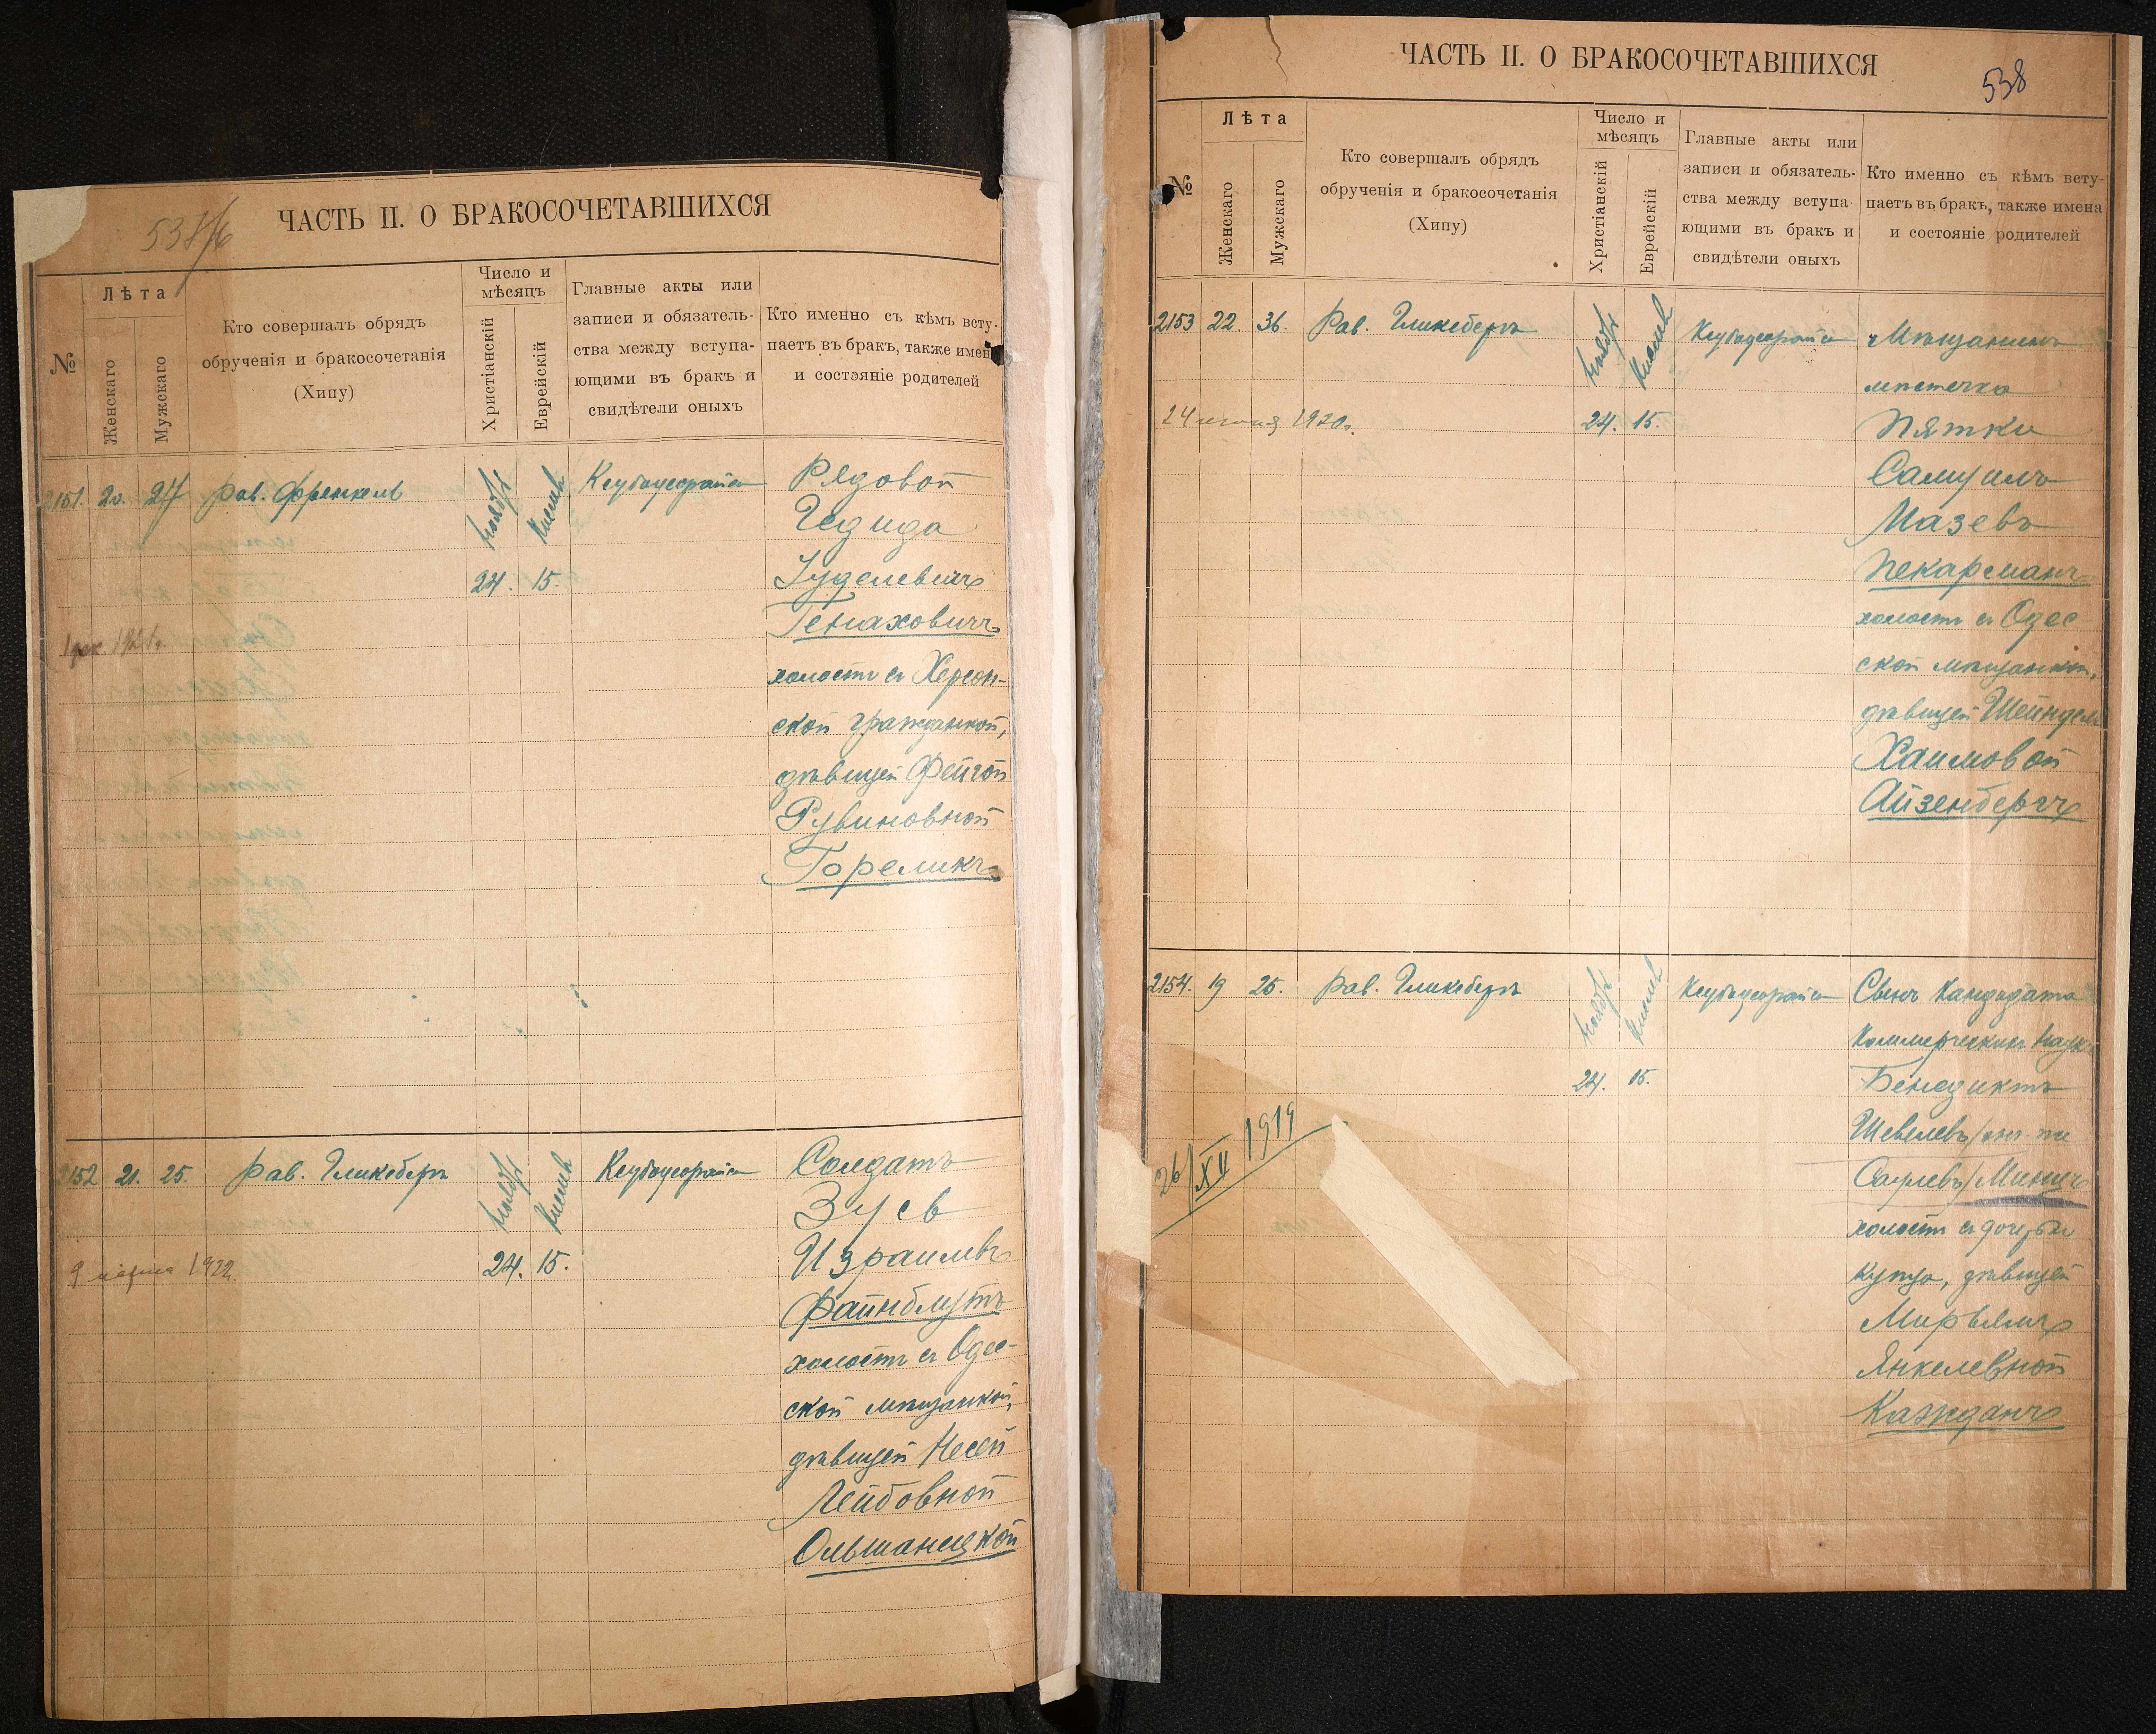 537/6
ЧАСТЬ II. О БРАКОСОЧЕТАВШИХСЯ
№
Лѣта
Женскаго
Мужскаго
Кто совершалъ обрядъ
обрученія и бракосочетанія
(Хипу)
Число и
мѣсяцъ
Христіанскій
Еврейскій
Главные акты или
записи и обязатель-
ства между вступа-
ющими въ бракъ и
свидѣтели оныхъ
Кто именно съ кѣмъ всту-
паетъ въ бракъ, также имена
и состояніе родителей
2151. 20. 27 Рав. Френкель
Ноябрь
Кислевъ
24. 15.
Рядовой
Гедида
Іуделевичъ
Генаховичъ
холостъ съ Херсон-
ской гражданкой,
дѣвицей Фейгой
Рувиновной
Гореликъ
1921г.
2152 21. 25. Рав. Гликсбергъ
Ноябрь
Кислевъ
24. 15.
Солдатъ
Зусь
Израилевъ
Файнблутъ
холостъ съ Одес-
ской мѣщанкой,
дѣвицей Несей
Лейбовной
Ольшанецкой
9 марта 1922.
ЧАСТЬ II. О БРАКОСОЧЕТАВШИХСЯ
538
№
Лѣта
Женскаго
Мужскаго
Кто совершалъ обрядъ
обрученія и бракосочетанія
(Хипу)
Число и
мѣсяцъ
Христіанскій
Еврейскій
Главные акты или
записи и обязатель-
ства между вступа-
ющими въ бракъ и
свидѣтели оныхъ
Кто именно съ кѣмъ всту-
паетъ въ бракъ, также имена
и состояніе родителей
2153 22. 36. Рав. Гликсбергъ
Ноябрь
Кислевъ
24. 15.
Мѣщанинъ
мѣстечка
Пятки
Самуилъ
Мазевъ
Пекарманъ
холостъ съ Одес
ской мѣщанкой,
дѣвицей Шейндель
Хаимовой
Айзенбергъ
24 1920г.
2154. 19 25. Рав. Гликсбергъ
Ноябрь
Кислевъ
24. 15.
Кандидата
Коммерческихъ Наукъ
Бенедиктъ
Шевелевъ/
Саулевъ/Минцъ
холостъ съ дочерью
купца, дѣвицей
Мирьямъ
Янкелевной
Кажданъ
26/XII 1919